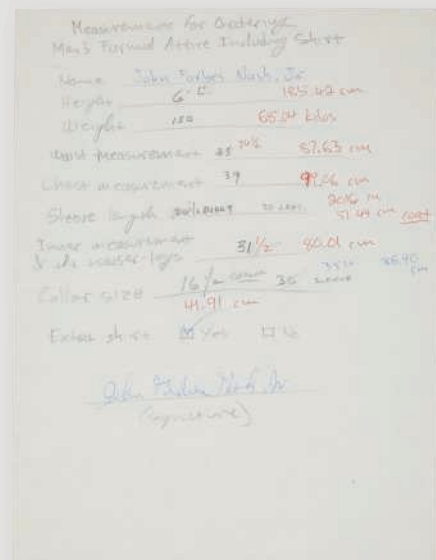 Measurements for Ordering
Men's Formal Attire Including Shirt
Name John Forbes Nash, Jr
Height 6' 185.42 cm
Weight 150 68.04 kilos
Waist measurement 35 34½ 87.63 cm
Chest measurement 39 99.06 cm
Sleeve length 51.44 cm coat
Inner measurement
trouser legs 31½ 80.01 cm
Collar size 16½ 35 sleeve cm
41.91 cm
Extra shirt ☑ Yes ☐ No
John Forbes Nash Jr
(signature)